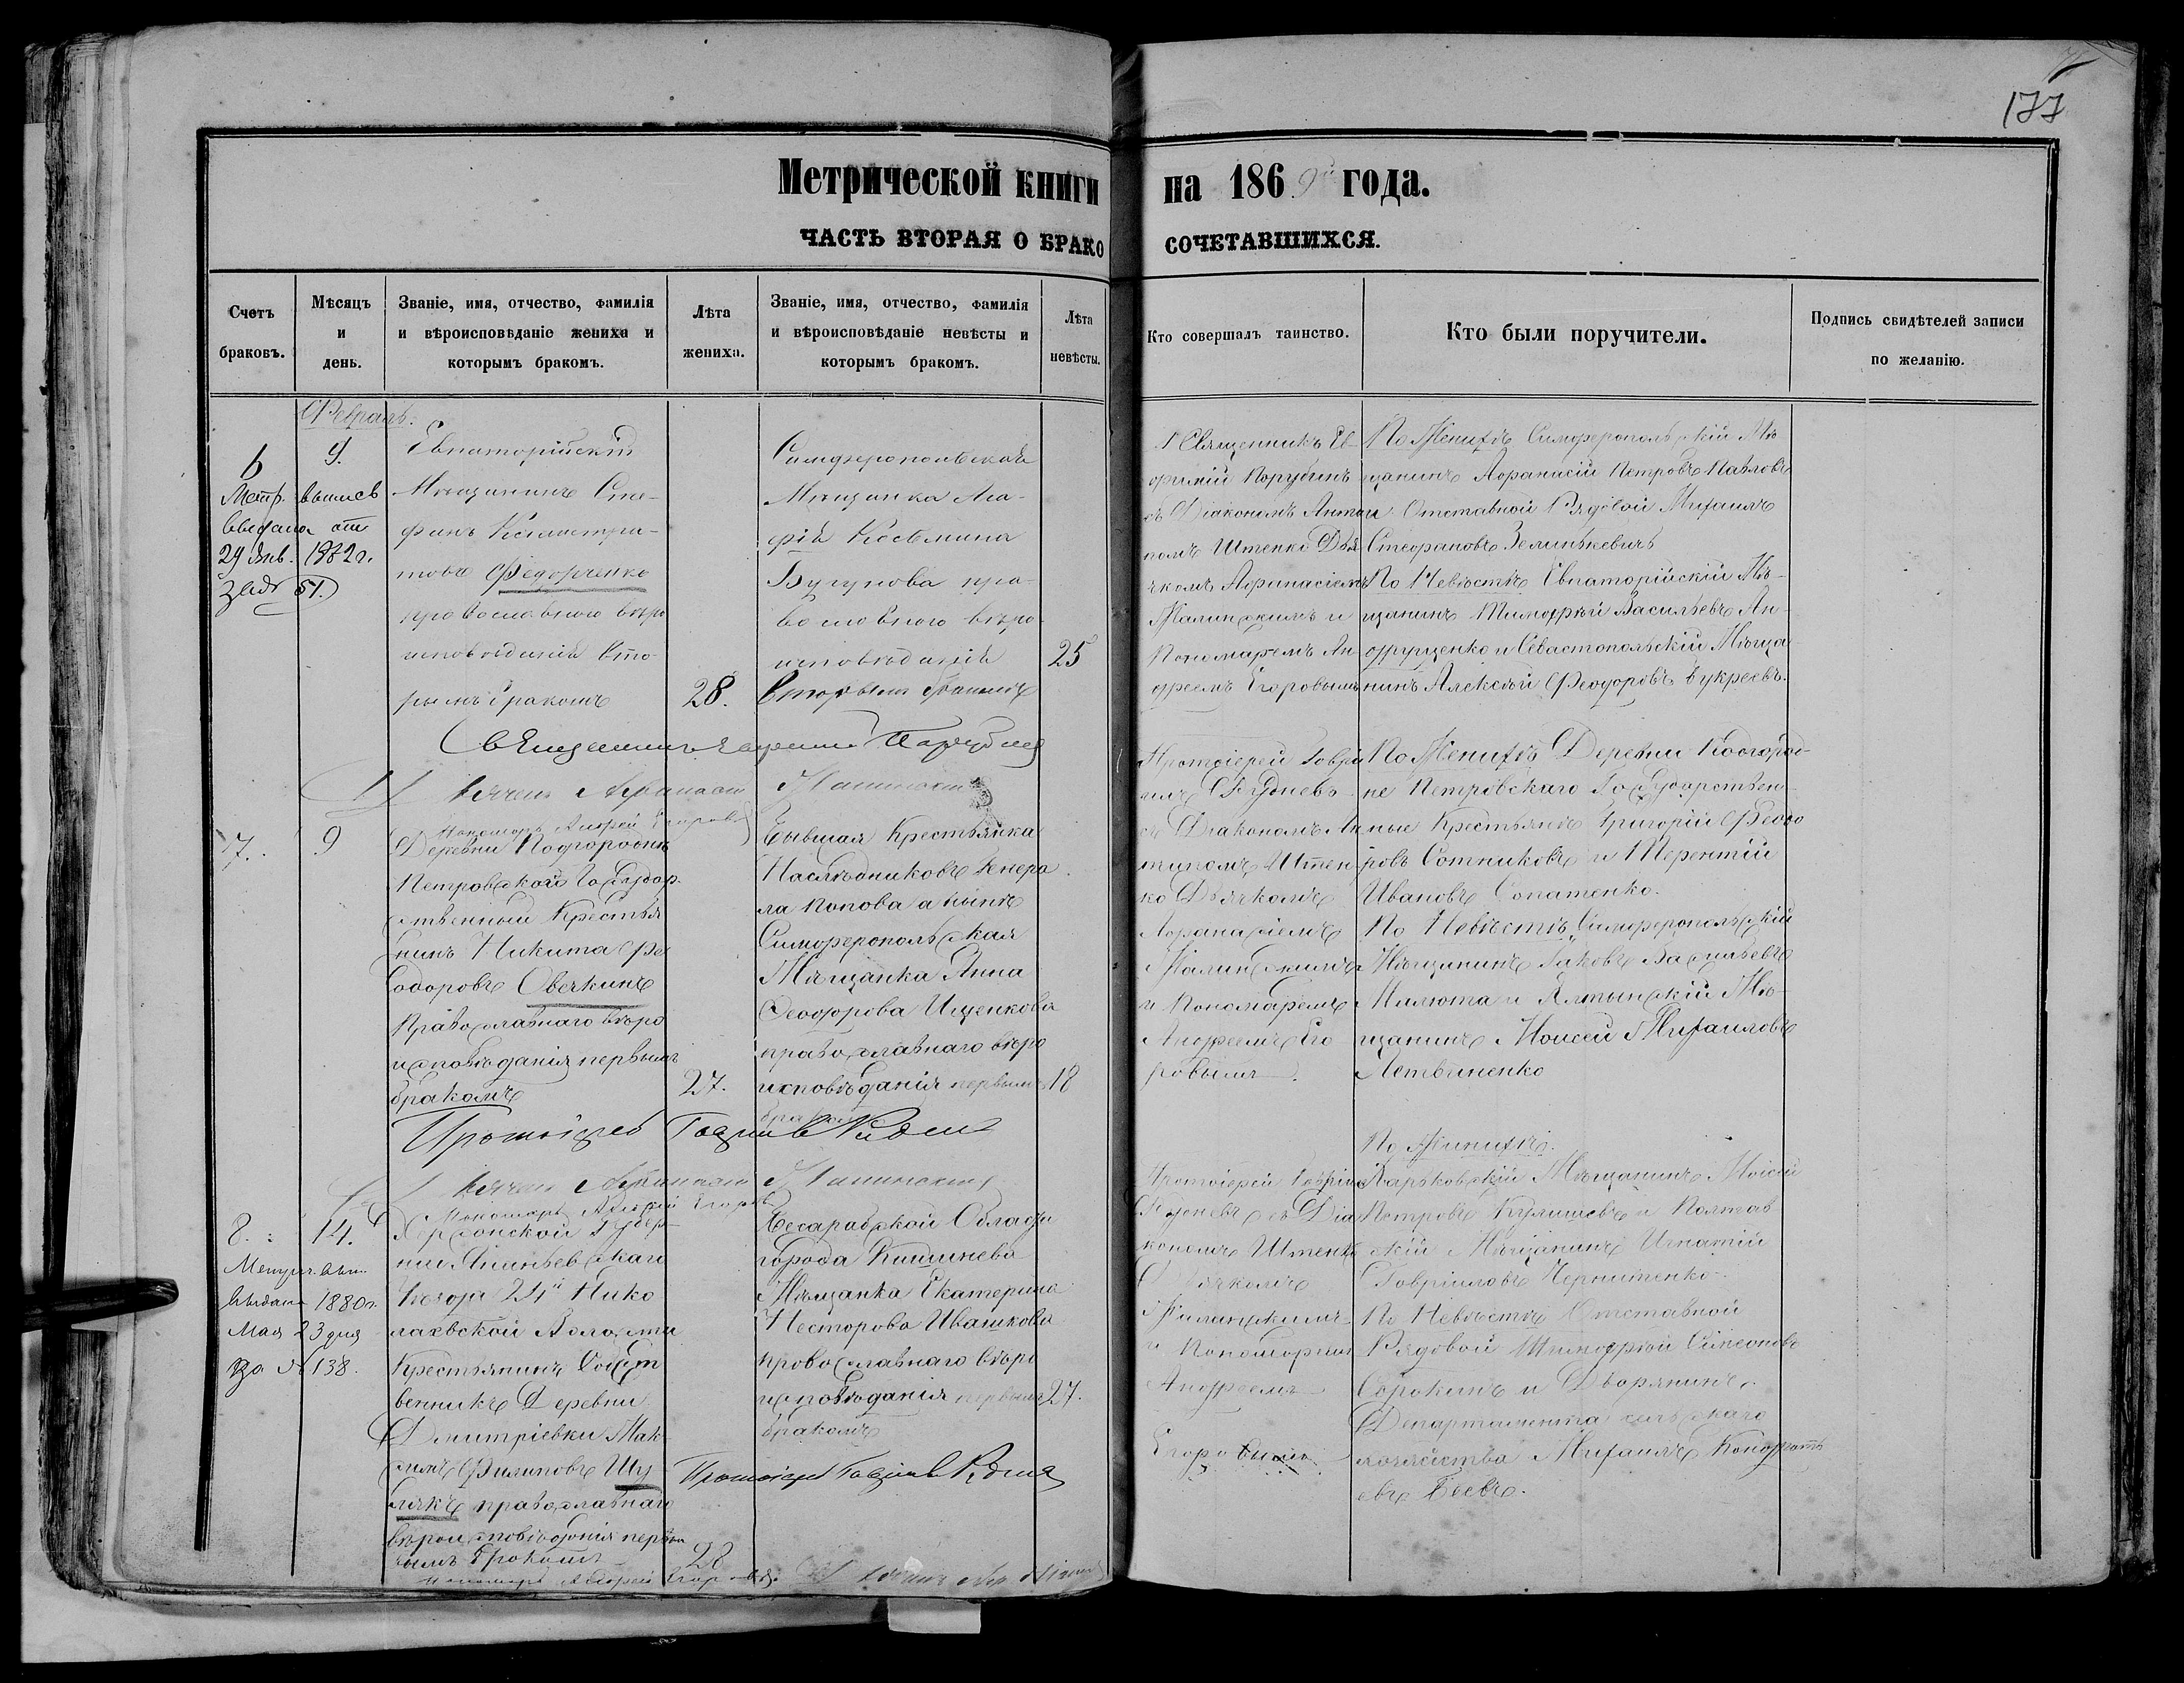 177
Метрической книги на 1869й года.
ЧАСТЬ ВТОРАЯ О БРАКОСОЧЕТАВШИХСЯ.
Счетъ браковъ.
Мѣсяцъ и день.
Званіе, имя, отчество, фамилія и вѣроисповѣданіе жениха и которымъ бракомъ.
Лѣта жениха.
Званіе, имя, отчество, фамилія и вѣроисповѣданіе невѣсты и которымъ бракомъ.
Лѣта невѣсты.
Кто совершалъ таинство.
Кто были поручители.
Подпись свидѣтелей записи по желанію.
Февраль.
6
9.
Метр. выпись
выдана от
29 Янв. 1882 г.
за № 51.
Евпаторійскій
Мѣщанинъ Сте-
фанъ
Федорченко
православного вѣро
исповѣданія вто-
рымъ бракомъ
28.
Симферопольская
Мѣщанка
Косьмина
Бугунова пра-
вославного вѣро-
исповѣданія
вторымъ бракомъ
25
Священникъ Ев-
фимій Порубинъ
съ Діакономъ Анти
помъ Штенко Дья
чкомъ Афанасіемъ
Жалинскимъ и
Пономаремъ Ан
дреемъ Егоровымъ
По Женихѣ Симферопольскій Мѣ
щанинъ Афанасій Петровъ Павловъ
и Отставной Рядовой Михаилъ
Стефановъ Зелинькевичъ
По Невѣстѣ Евпаторійскій Мѣ-
щанинъ Тимофей Васильевъ Ан-
друщенко и Севастопольскій Мѣща
нинъ Алексѣй Феодоровъ Букреевъ.
7.
9
Деревни Подгородне
Петровской Государ
ственный Крестья
нинъ Никита Фе
одоровъ Овечкинъ
Православнаго вѣро
исповѣданія первымъ
бракомъ
27.
Бывшая Крестьянка
Наслѣдниковъ Генера
ла Попова а нынѣ
Симферопольская
Мѣщанка Анна
Феодорова Ищенкова
православнаго вѣро
исповѣданія первымъ
бракомъ
18
Протоіерей Гаврі
илъ Рудневъ
съ Діакономъ Ан
типомъ Штен
ко Дьячкомъ
Афанасіемъ
Жалинскимъ
и Пономаремъ
Андреемъ Его
ровымъ.
По Женихѣ Деревни Подгород-
не Петровскаго Государствен-
ные Крестьяне Григорій Феодо
ровъ Сотниковъ и Терентій
Ивановъ Сопатенко.
По Невѣстѣ Симферопольскій
Мѣщанинъ Яковъ Васильевъ
Милюта и Ялтынскій Мѣ-
щанинъ Моисей Михаиловъ
Летвиненко
Протоіерей Гавріилъ Руднев
8.
14.
Метрич. вып.
выдана 1880 г.
Мая 23 дня
за № 138.
Херсонской Губер-
ніи Ананьевскаго
уѣзда 24й Нико
лаевской Волости
Крестьянинъ Собст
венникъ Деревни
Дмитріевки Мак-
симъ Филиповъ Шу
лякъ православнаго
вѣроисповѣданія перв
ымъ бракомъ
28
Бесарабской Области
города Кишинева
Мѣщанка Екатерина
Несторова Ивашкова
православнаго вѣро
исповѣданія первымъ
бракомъ
27.
Протоіерей Гавріилъ
Рудневъ съ Діа
кономъ Штенко
Дьячкомъ
Жалинскимъ
и Пономаремъ
Андреемъ
Егоровымъ
По Женихѣ.
Харьковскій Мѣщанинъ Моисей
Петровъ Кулишевъ и Полтав
скій Мѣщанинъ Игнатій
Гавріиловъ Чернитенко.
По Невѣстѣ Отставной
Рядовой Тимофѣй Симеоновъ
Сорокинъ и Дворянинъ
Департамента сельскаго
хозяйства Михаилъ Кондрать
евъ Боевъ.
Протоіерей Гавріилъ Руднев